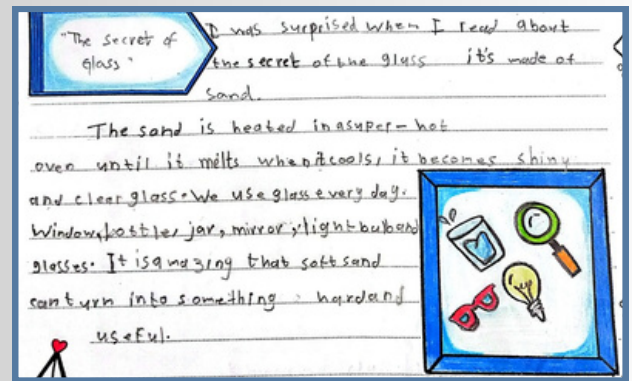 "The secret of
Glass"
I was surprised when I read about
the secret of the glass it's made of
sand.
The sand is heated in a super-hot
oven until it melts when it cools, it becomes shiny
and clear glass. We use glass every day.
Window, bottle, jar, mirror, light bulb and
glasses. It is amazing that soft sand
can turn into something hard and
useful.